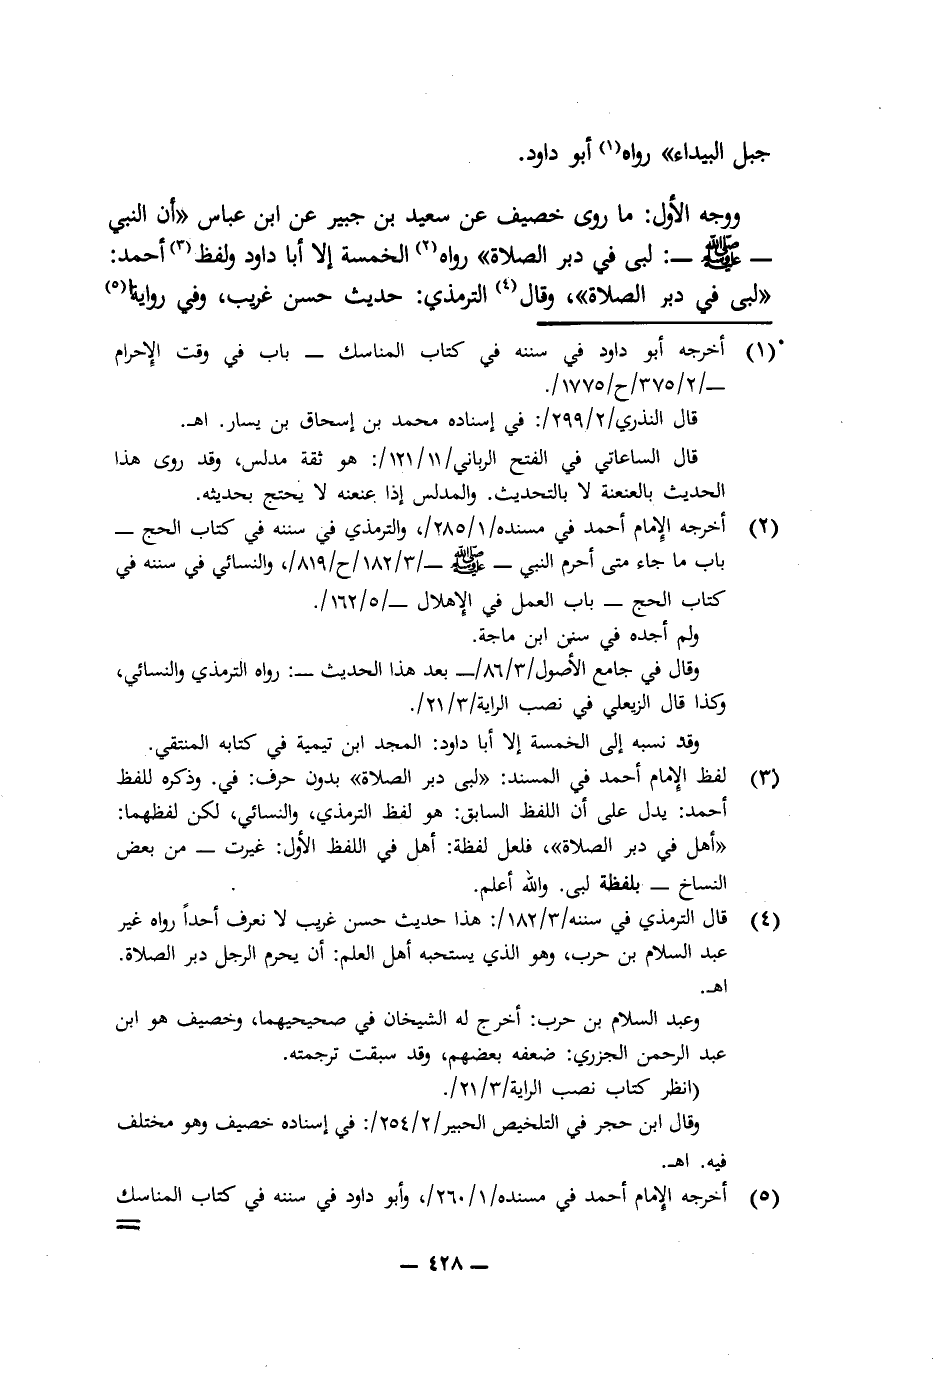 جبل البيداء» رواه(١) أبو داود.
ووجه الأول: ما روى خصيف عن سعيد بن جبير عن ابن عباس «أن النبي
— ﷺ —: لبى في دبر الصلاة» رواه(٢) الخمسة إلا أبا داود ولفظ(٣) أحمد:
«لبى في دبر الصلاة»، وقال(٤) الترمذي: حديث حسن غريب، وفي رواية(٥)
(١) أخرجه أبو داود في سننه في كتاب المناسك — باب في وقت الإحرام
—/٢/٣٧٥/ح/١٧٧٥/.
قال النذري/٢/٢٩٩/: في إسناده محمد بن إسحاق بن يسار. اهـ.
قال الساعاتي في الفتح الرباني/١١/١٢١/: هو ثقة مدلس، وقد روى هذا
الحديث بالعنعنة لا بالتحديث. والمدلس إذا عنعنه لا يحتج بحديثه.
(٢) أخرجه الإمام أحمد في مسنده/١/٢٨٥/، والترمذي في سننه في كتاب الحج —
باب ما جاء متى أحرم النبي — ﷺ —/٣/١٨٢/ح/٨١٩/، والنسائي في سننه في
كتاب الحج — باب العمل في الإهلال —/٥/١٦٢/.
ولم أجده في سنن ابن ماجة.
وقال في جامع الأصول/٣/٨٦/— بعد هذا الحديث —: رواه الترمذي والنسائي،
وكذا قال الزيعلي في نصب الراية/٣/٢١/.
وقد نسبه إلى الخمسة إلا أبا داود: المجد ابن تيمية في كتابه المنتقي.
(٣) لفظ الإمام أحمد في المسند: «لبى دبر الصلاة» بدون حرف: في. وذكره للفظ
أحمد: يدل على أن اللفظ السابق: هو لفظ الترمذي، والنسائي، لكن لفظهما:
«أهل في دبر الصلاة»، فلعل لفظة: أهل في اللفظ الأول: غيرت — من بعض
النساخ — بلفظة لبى. والله أعلم.
(٤) قال الترمذي في سننه/٣/١٨٢/: هذا حديث حسن غريب لا نعرف أحداً رواه غير
عبد السلام بن حرب، وهو الذي يستحبه أهل العلم: أن يحرم الرجل دبر الصلاة.
اهـ.
وعبد السلام بن حرب: أخرج له الشيخان في صحيحيهما، وخصيف هو ابن
عبد الرحمن الجزري: ضعفه بعضهم، وقد سبقت ترجمته.
(انظر كتاب نصب الراية/٣/٢١/.
وقال ابن حجر في التلخيص الحبير/٢/٢٥٤/: في إسناده خصيف وهو مختلف
فيه. اهـ.
(٥) أخرجه الإمام أحمد في مسنده/١/٢٦٠/، وأبو داود في سننه في كتاب المناسك
=
— ٤٢٨ —